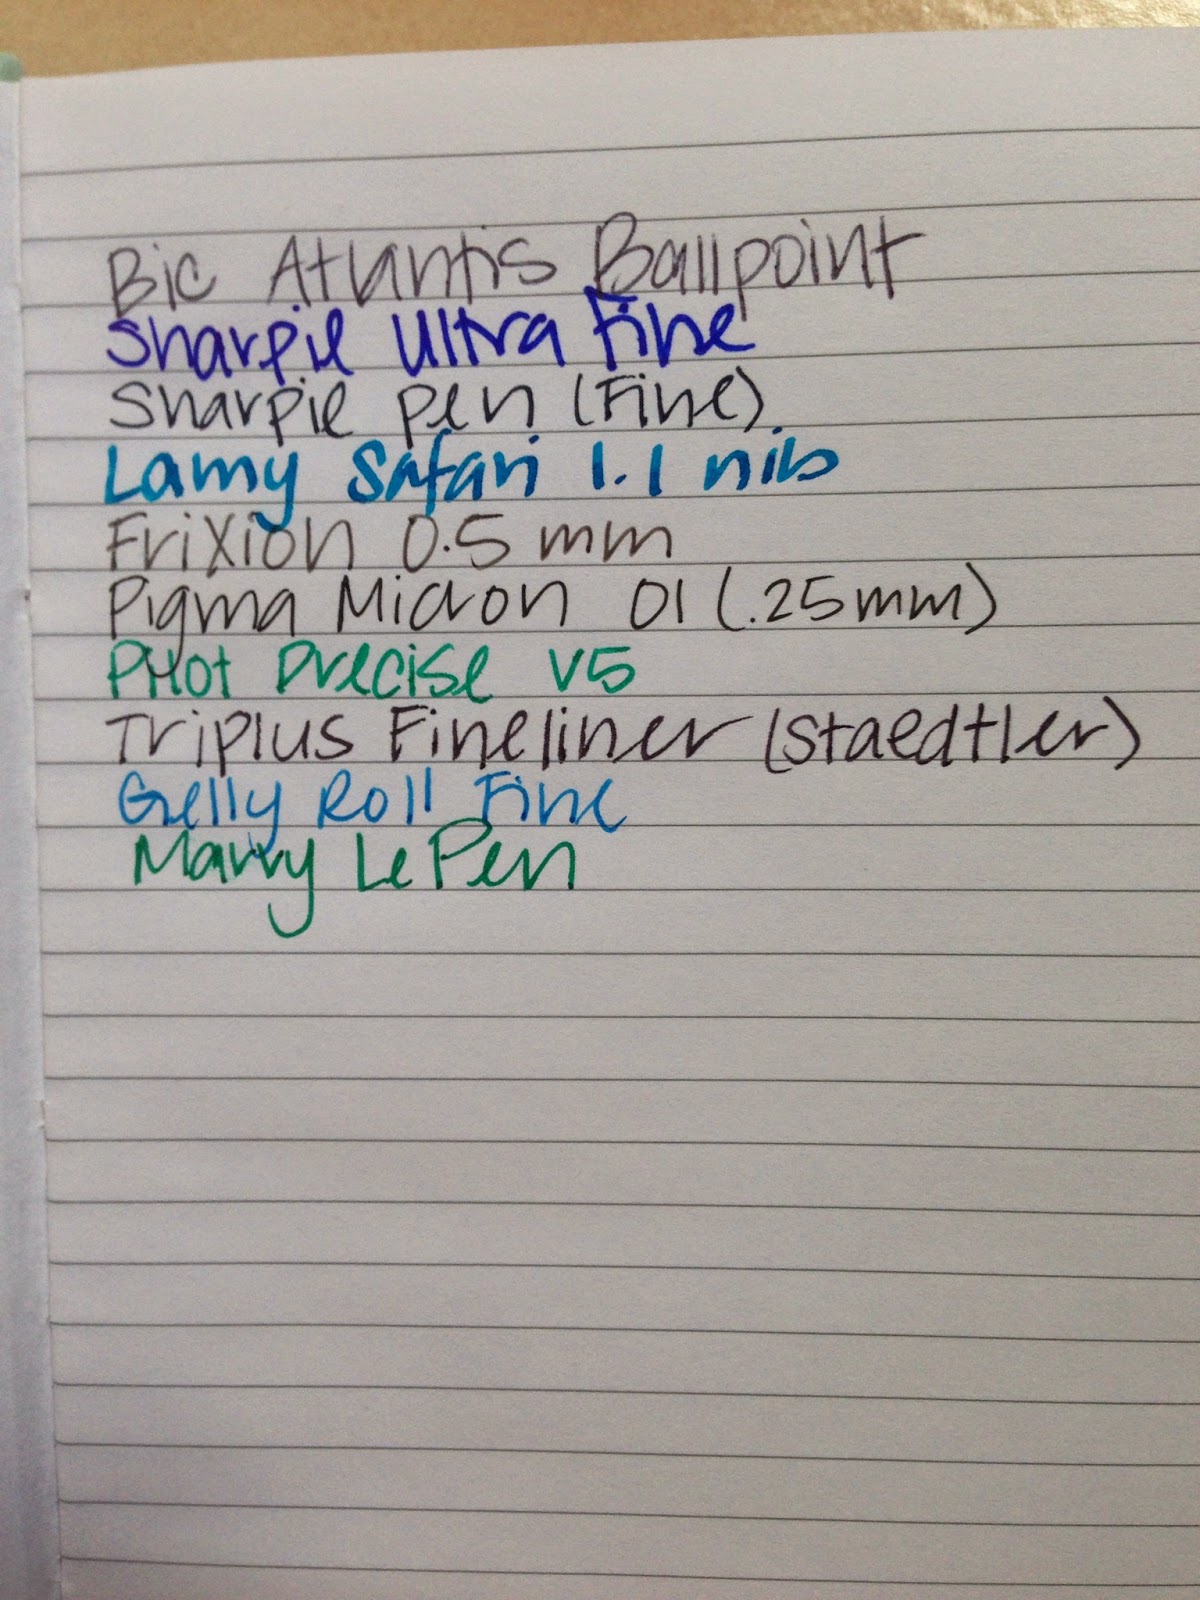 Bic Atlantis Ballpoint
Sharpie Ultra Fine
Sharpie pen (Fine)
Lamy Safari 1.1 nib
FriXion 0.5 mm
Pigma Micron 01 (.25mm)
Pilot Precise V5
Triplus Fineliner (Staedtler)
Gelly Roll Fine
Marvy Le Pen